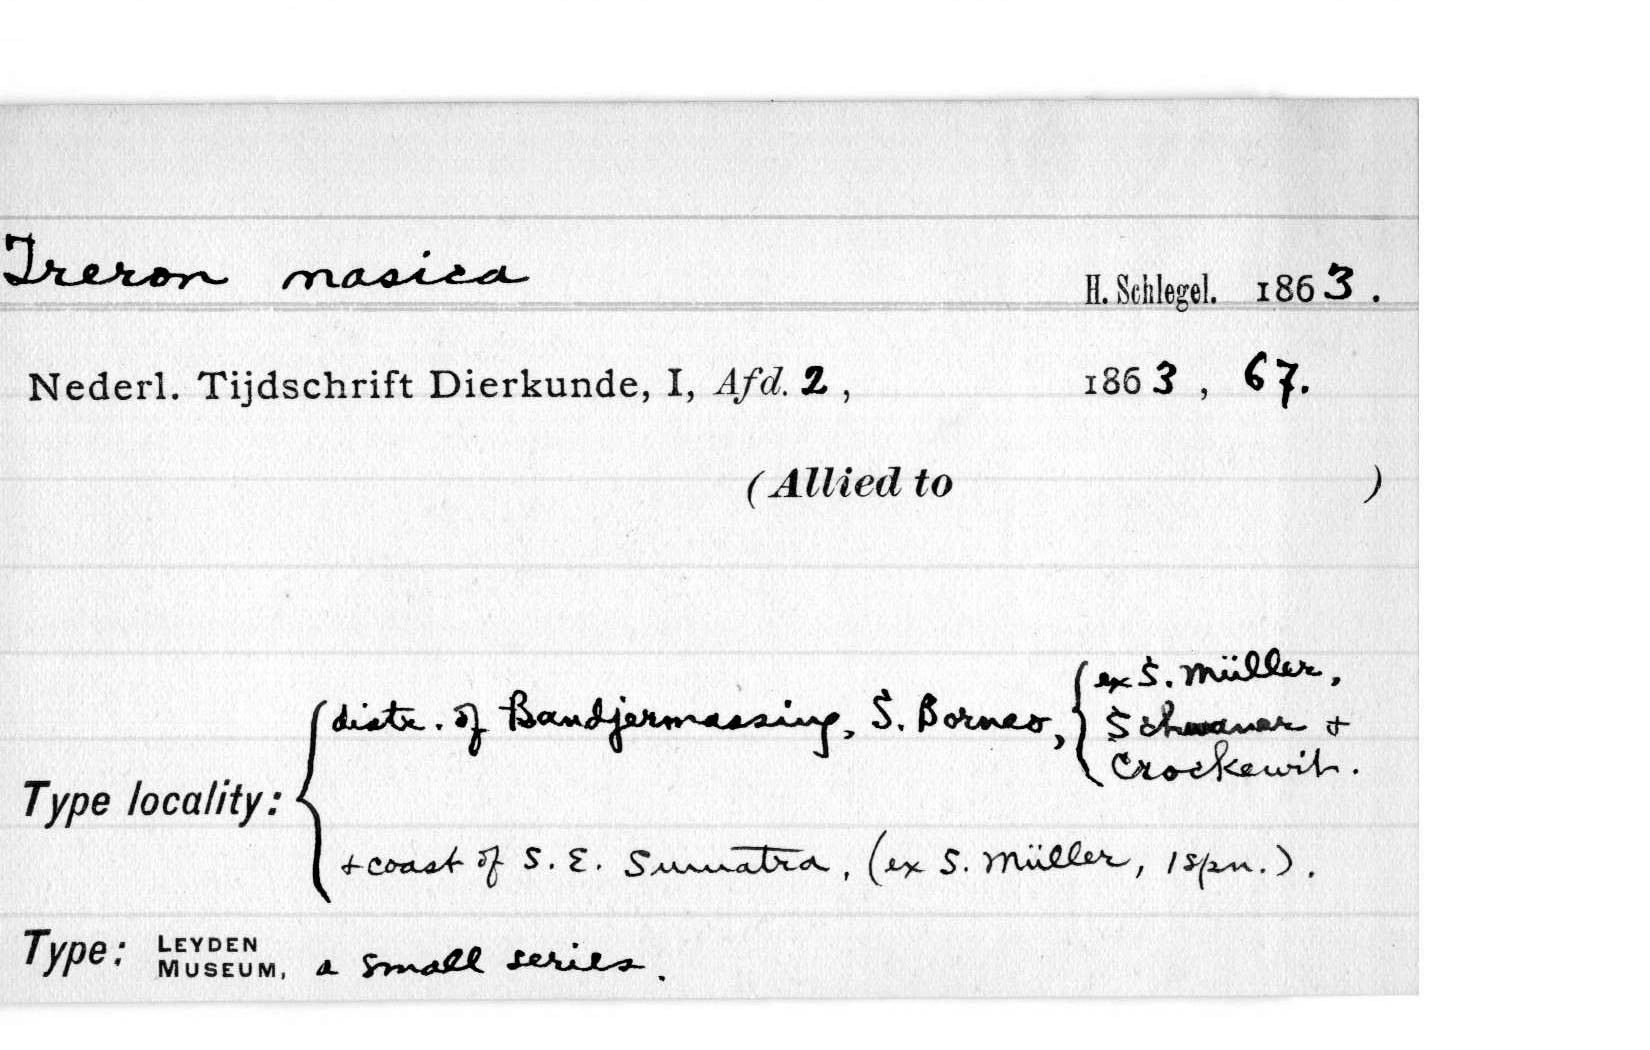 Treron nasica H. Schlegel. 1863.
Nederl. Tijdschrift Dierkunde, I, Afd. 2, 1863, 67.
(Allied to )
Type locality: { distr. of Bandjermassing, S. Borneo, { ex S. Müller,
Schwaner +
Crockewit.
+ coast of S. E. Sumatra, (ex S. Müller, 1 spn.).
Type: LEYDEN MUSEUM, a small series.